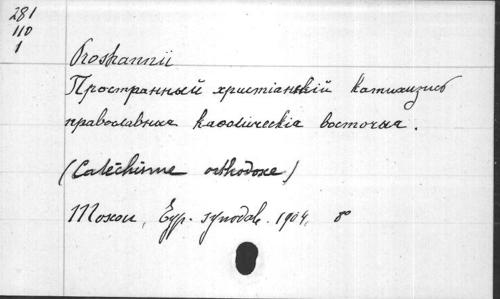 281
110
1
Proshannii
Пространный христіанскій катихизисъ
православныя каѳолическія восточныя.
(Catéchisme orthodoxe)
Moscou, Typ. synodale. 1904. 8°